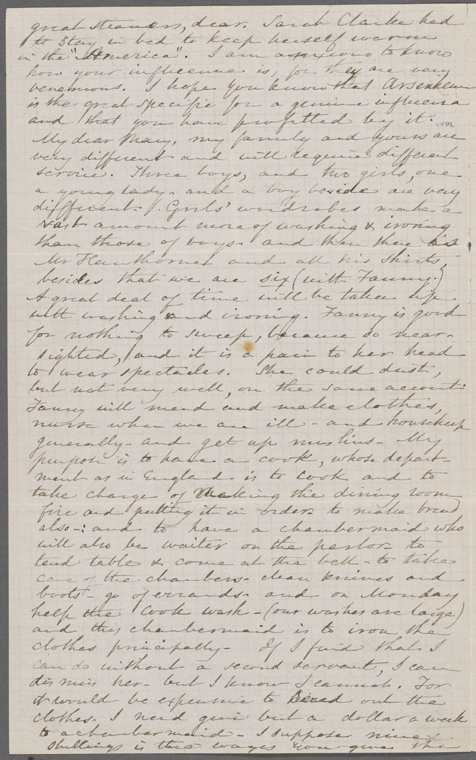 great steamers, dear. Sarah Clarke had
to stay in bed to keep herself warm
in the "America". I am anxious to know
how your influenza is, for they are very
venemous. I hope you know that Arsenicum
is the great specific for a genuine influenza
and that you have profitted by it.
My dear Mary, my family and yours are
very different and will require different
service. Three boys, and two girls, one
a young lady - and a boy beside are very
different. Girls' wardrobes make a
vast amount more of washing & ironing
than those of boys - and then there is
Mr Hawthorne and all his shirts,
besides that we are six (with Fanny.)
A great deal of time will be taken up
with washing and ironing. Fanny is good
for nothing to sweep, because so near-
sighted, and it is a pain to her head
to wear spectacles. She could dust,
but not very well, on the same account.
Fanny will mend and make clothes,
nurse when we are ill - and housekeep
generally - and get up muslins - My
purpose is to have a cook, whose depart-
ment as in England is to cook and to
take charge of making the dining room
fire and putting it in order & to make bread
also -: and to have a chambermaid who
will also be waiter on the parlor - to
tend table & come at the bell - to take
care of the chambers - clean knives and
boots - go of errands - and on Monday
help the cook wash - (our washes are large)
and this chambermaid is to iron the
clothes principally - If I find that I
can do without a second servant, I can
dismiss her - but I know I cannot. For
it would be expensive to send out the
clothes. I need give but a dollar a week
to a chambermaid - I suppose nine
shillings is the wages you give the